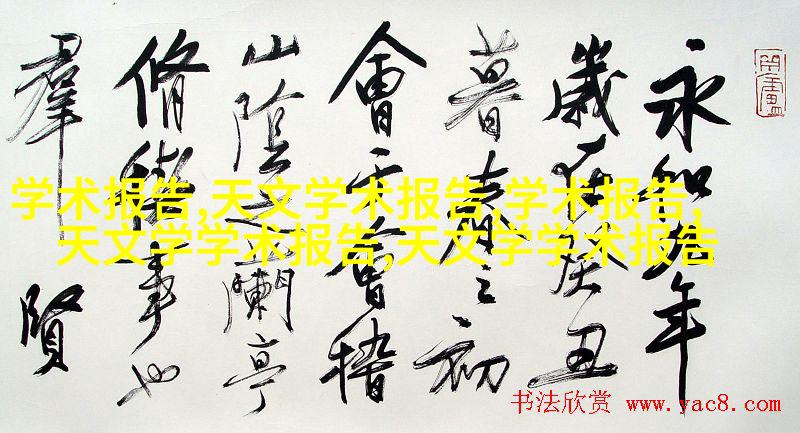 永和九年
歲在癸丑
暮春之初
會于會稽
山陰之蘭亭
脩禊事也
羣賢
学术报告,天文学术报告,学术报告,
天文学学术报告,天文学学术报告
书法欣赏 www.yac8.com